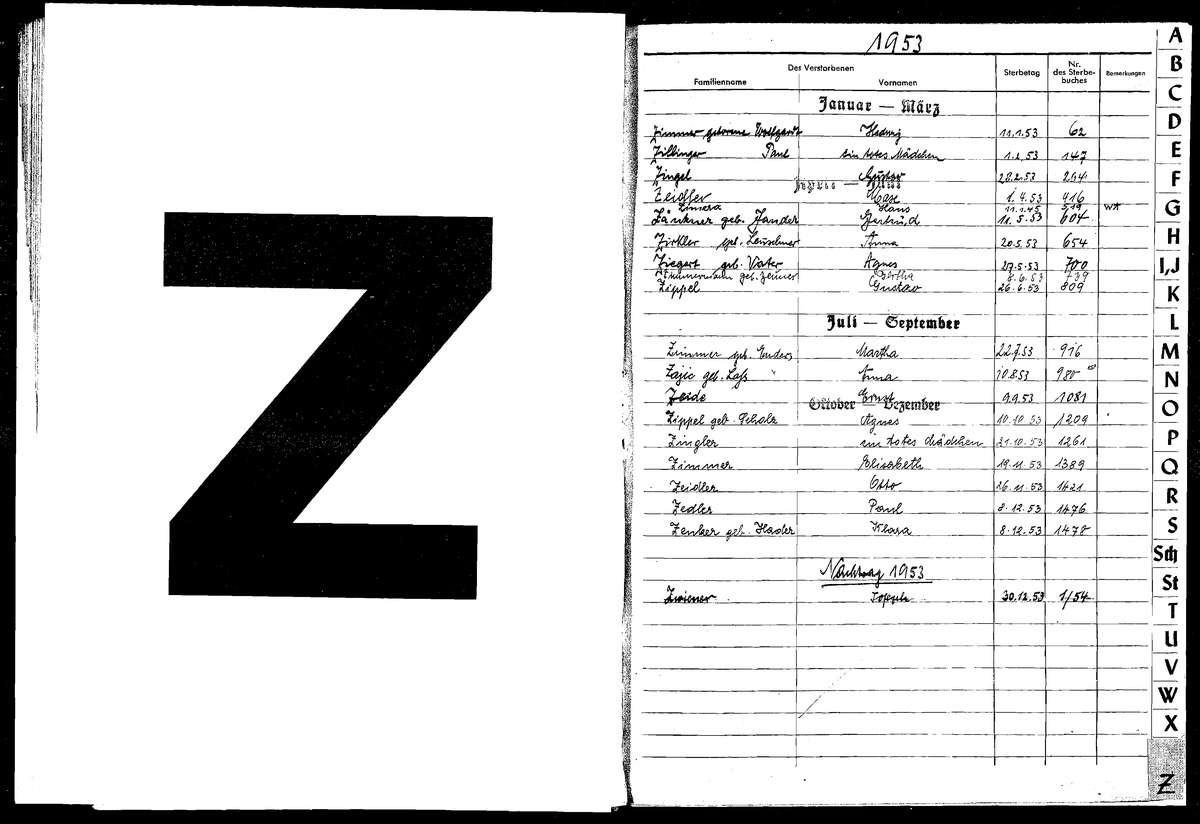 Z
1953
Des Verstorbenen
Familienname Vornamen Sterbetag Nr. des Sterbebuches Bemerkungen
Januar — März
Zimmer geborene Wolfgardt Hedwig 11.1.53 62
Zillinger Paul ein totes Mädchen 1.2.53 147
Zingel Gustav 28.2.53 264
April — Juni
Zeidler Max 1.4.53 416
Hans 519 WA
Zänkner geb. Zander Gertrud 11.5.53 604
Zirkler geb. Leuschner Anna 20.5.53 654
Ziegert geb. Vater Agnes 27.5.53 700
Zimmermann geb. Zenner Bertha 8.6.53 739
Zippel Gustav 26.6.53 809
Juli — September
Zimmer geb. Enders Martha 22.7.53 916
Zajic geb. Anna 10.8.53 980
Zeide Ernst 9.9.53 1081
Oktober — Dezember
Zippel geb. Scholz Agnes 10.10.53 1209
Zingler ein totes Mädchen 21.10.53 1261
Zimmer Elisabeth 19.11.53 1389
Zeidler Otto 26.11.53 1421
Zedler Paul 8.12.53 1476
Zenker geb. Hader Klara 8.12.53 1478
Nachtrag 1953
Zwiener Joseph 30.12.53 1/54
A
B
C
D
E
F
G
H
I,J
K
L
M
N
O
P
Q
R
S
Sch
St
T
U
V
W
X
Z